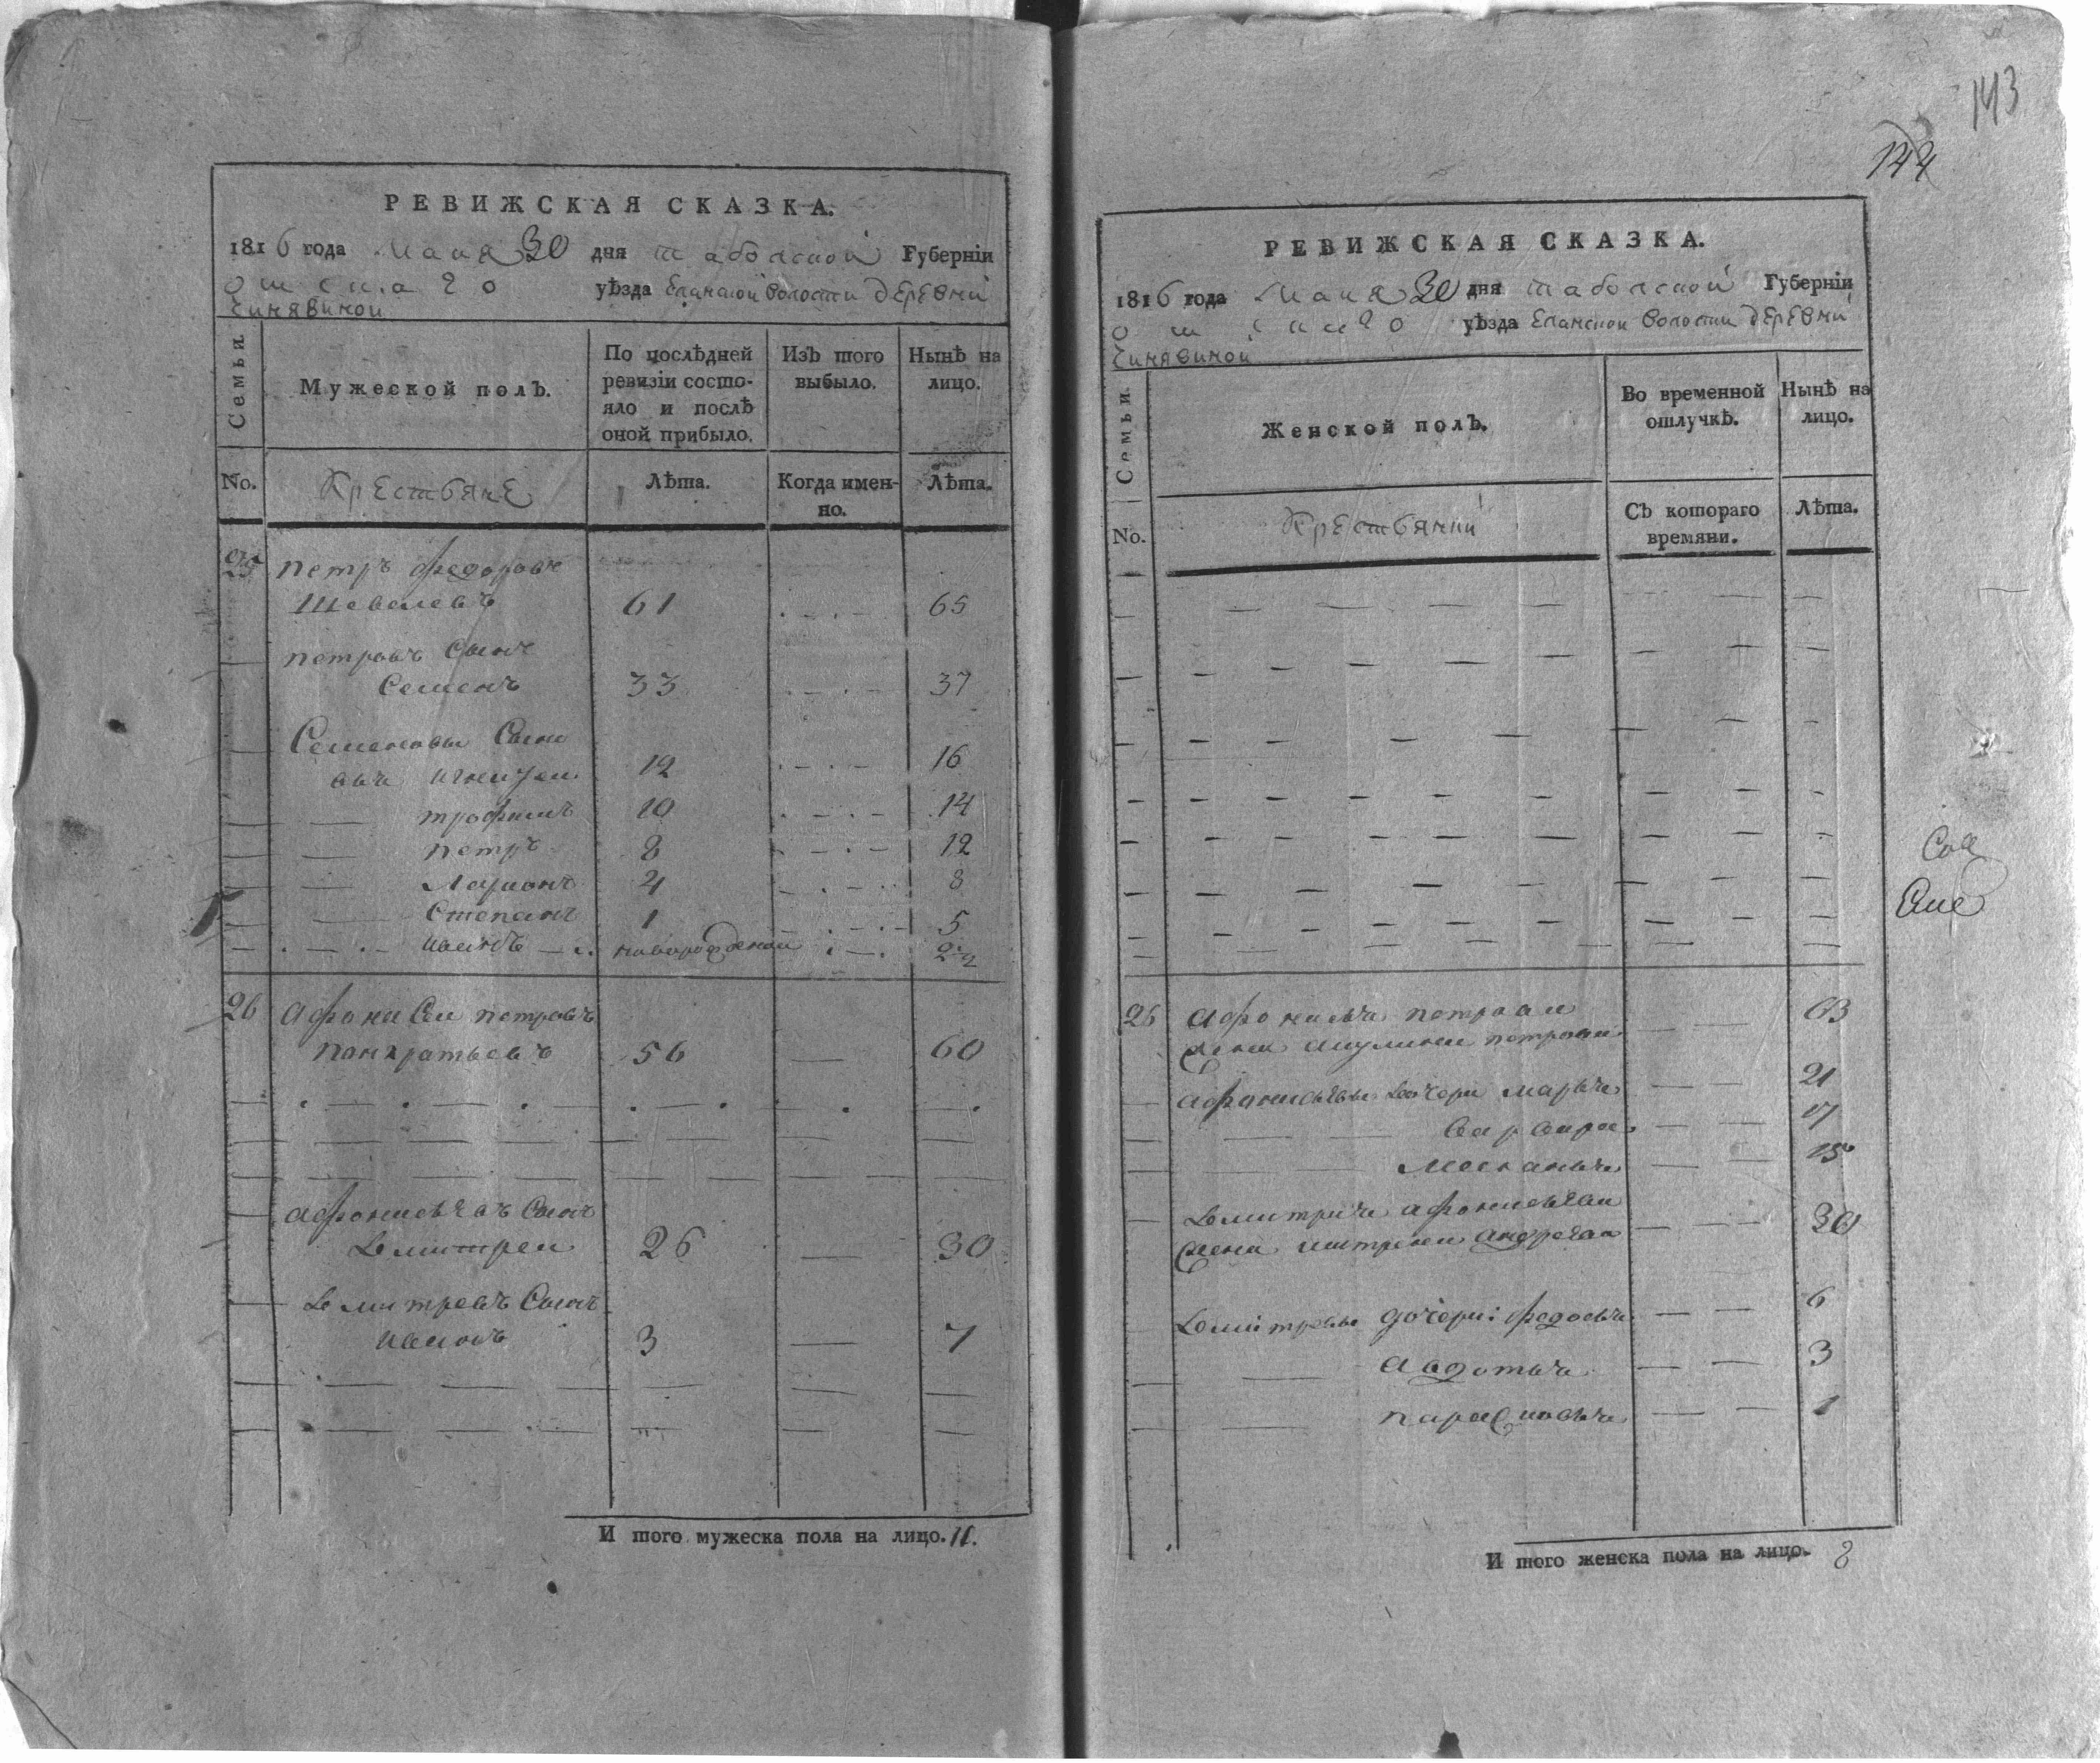 РЕВИЖСКАЯ СКАЗКА.
1816 года Маия 30 дня таболской Губерніи
омскаго уѣзда Еланской волости деревни
Чинявиной
Семьи.
Мужеской полъ.
По послѣдней ревизіи состо-
яло и послѣ оной прибыло.
Изъ того выбыло.
Нынѣ на лицо.
No.
Крестьяне
Лѣта.
Когда имен-
но.
Лѣта.
25 петръ федоровъ
Шевелевъ 61 65
петровъ сынъ
Семенъ 33 37
Семеновы Сыно
вья 12 16
трофимъ 10 14
петръ 8 12
Ларионъ 4 8
Степанъ 1 5
иванъ новорожденои 2 1/2
26 афонасеи петровъ
понкратьевъ 56 60
афонасьевъ Сынъ
Дмитреи 26 30
Дмитревъ Сынъ
иванъ 3 7
И того мужеска пола на лицо. 11.
143
144
РЕВИЖСКАЯ СКАЗКА.
1816 года Маия 30 дня таболской Губерніи
омскаго уѣзда Еланской волости деревни
Чинявиной
Семьи.
Женской полъ.
Во временной
отлучкѣ.
Нынѣ на
лицо.
No.
Крестьянки
Съ котораго
времяни.
Лѣта.
26 афонасья петрова
жена акулина петрова 63
афонасьевы дочери марья 21
варвара 17
меланья 15
Дмитрия афонасьева
жена матрена андреева 30
Дмитревы дочери: федосья 6
авдотья 3
парасковья 1
И того женска пола на лицо. 8